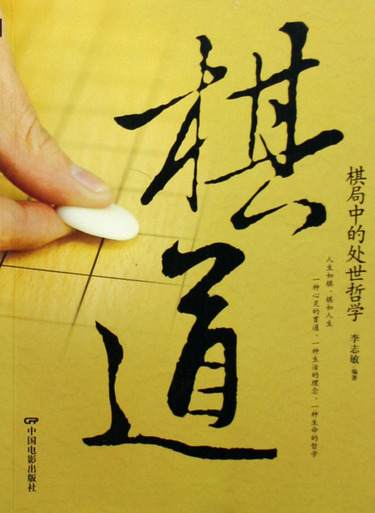 棋道
棋局中的处世哲学
李志敏 编著
人生如棋、棋如人生
一种心灵的贯通、一种生活的理念、一种生命的哲学
中国电影出版社